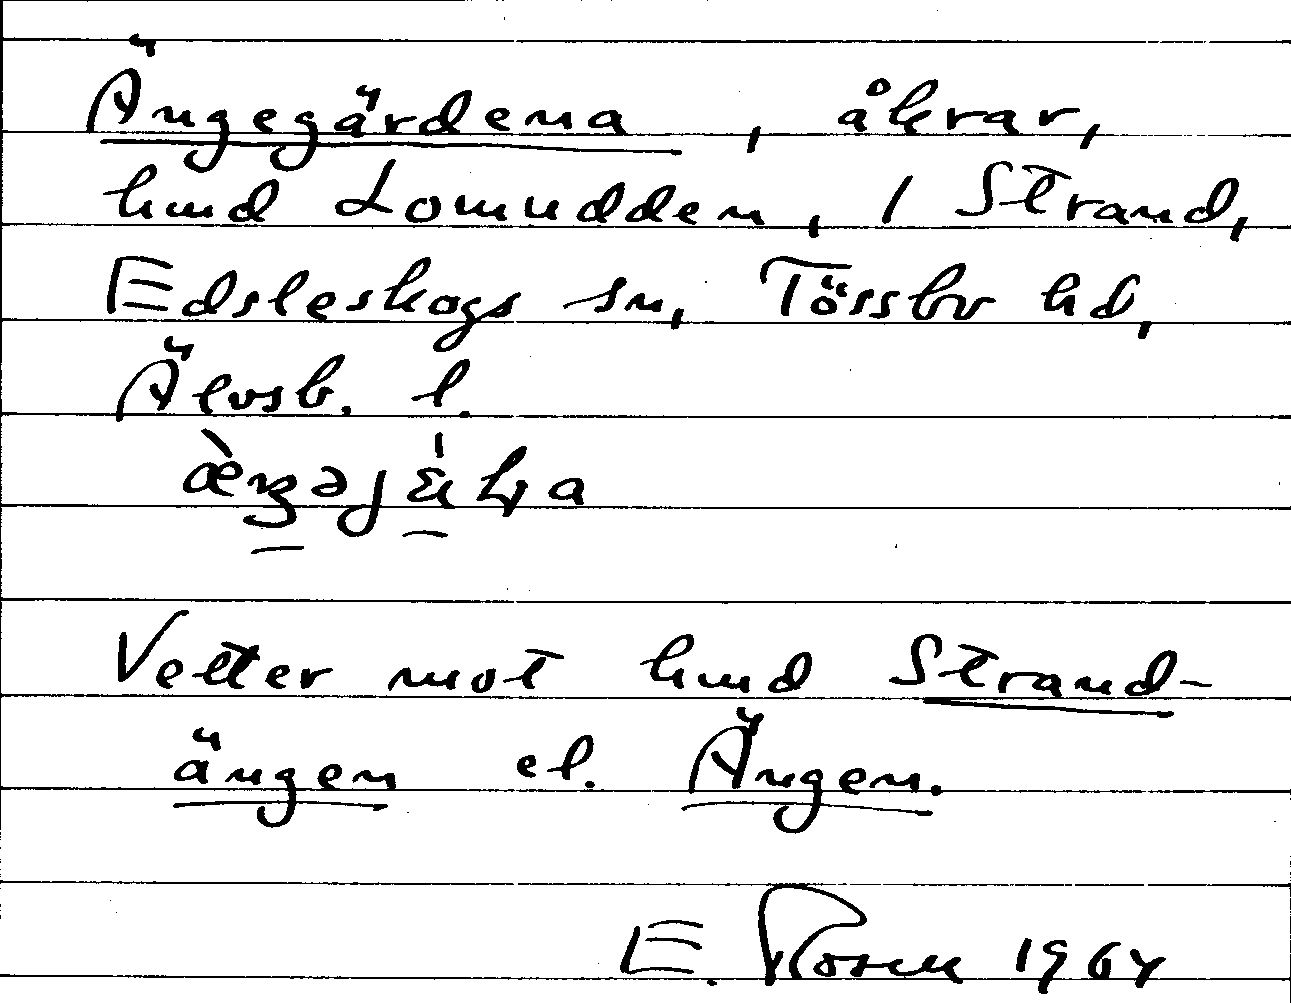 Ängegärdena, åkrar,
hmd Lomudden, 1 Strand,
Edsleskogs sn, Tössbo hd,
Älvsb. l.
Vetter mot hmd Strand-
ängen el. Ängen.
E. Rosen 1964